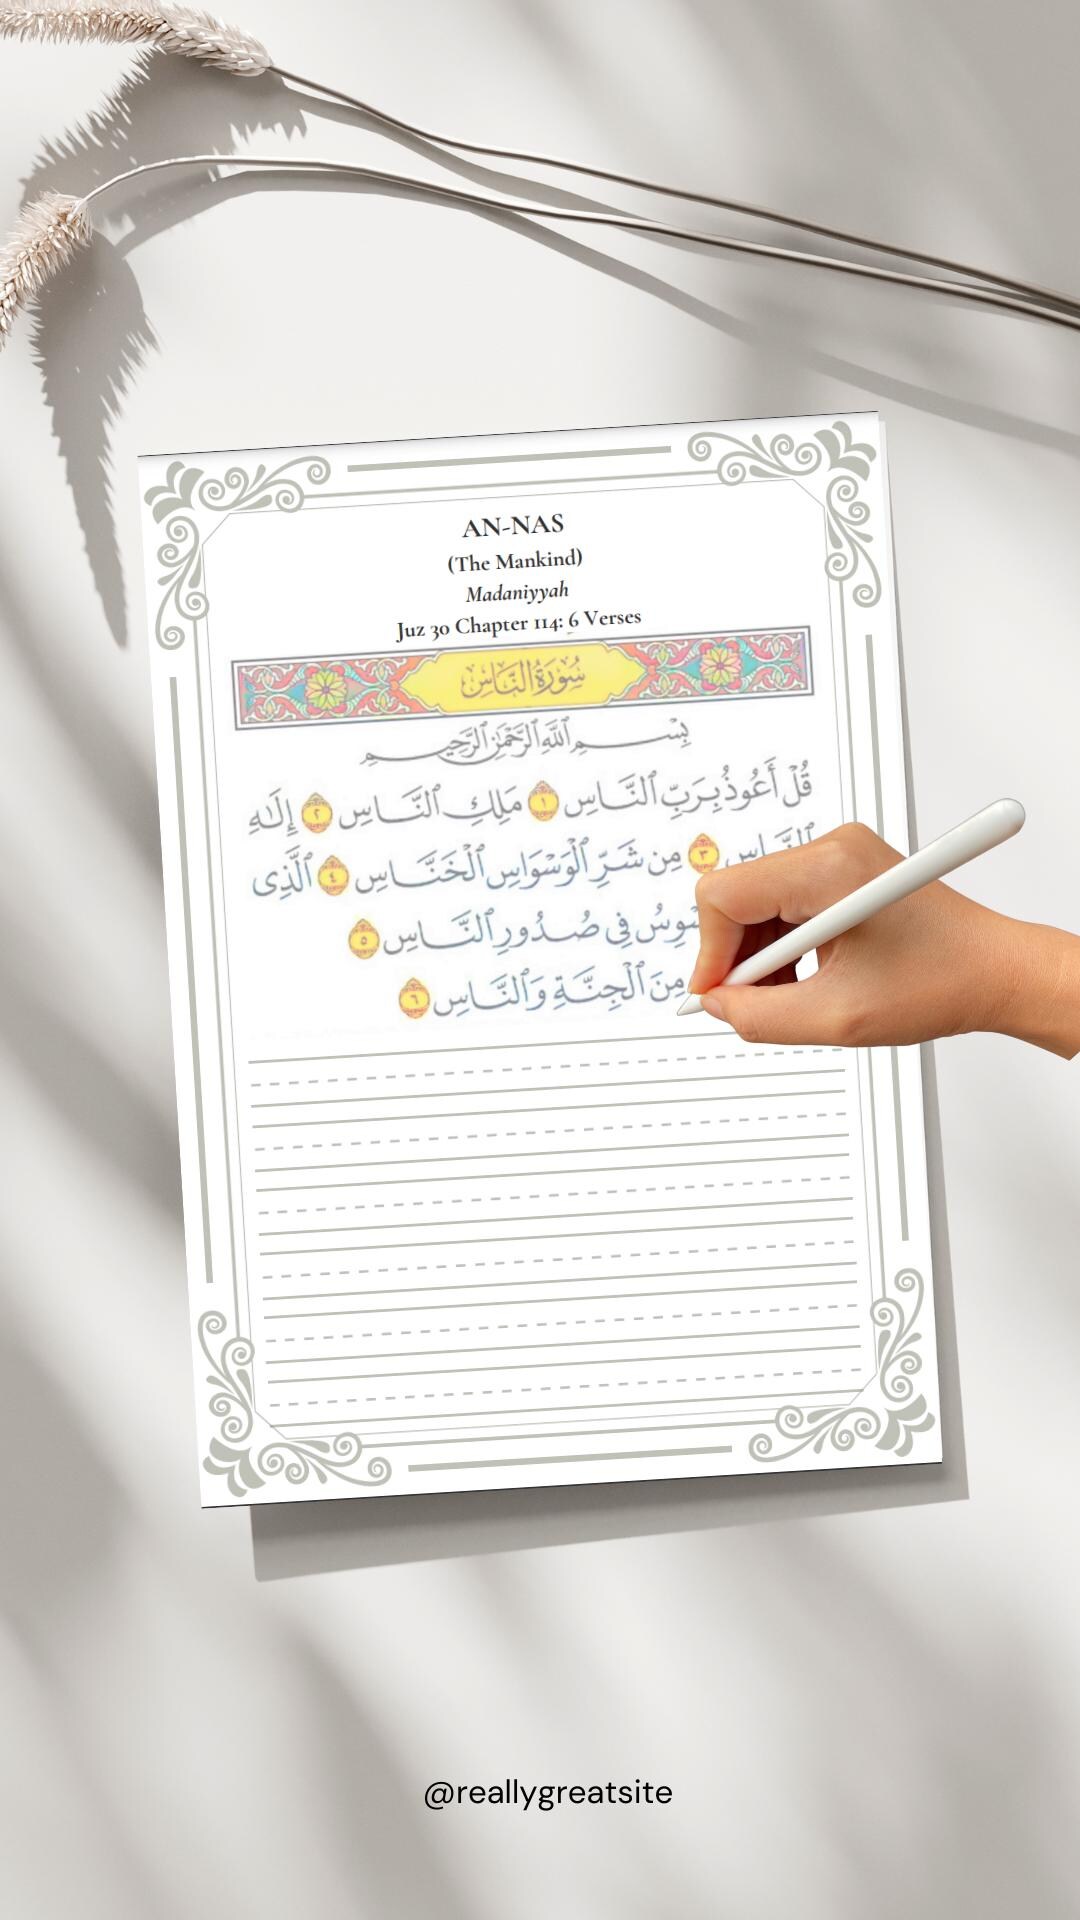 AN-NAS
(The Mankind)
Madaniyyah
Juz 30 Chapter 114: 6 Verses
سُورَةُ النَّاسِ
بِسْمِ اللَّهِ الرَّحْمَٰنِ الرَّحِيمِ
قُلْ أَعُوذُ بِرَبِّ ٱلنَّاسِ ١ مَلِكِ ٱلنَّاسِ ٢ إِلَٰهِ
ٱلنَّاسِ ٣ مِن شَرِّ ٱلْوَسْوَاسِ ٱلْخَنَّاسِ ٤ ٱلَّذِى
فِى صُدُورِ ٱلنَّاسِ ٥
مِنَ ٱلْجِنَّةِ وَٱلنَّاسِ ٦
@reallygreatsite